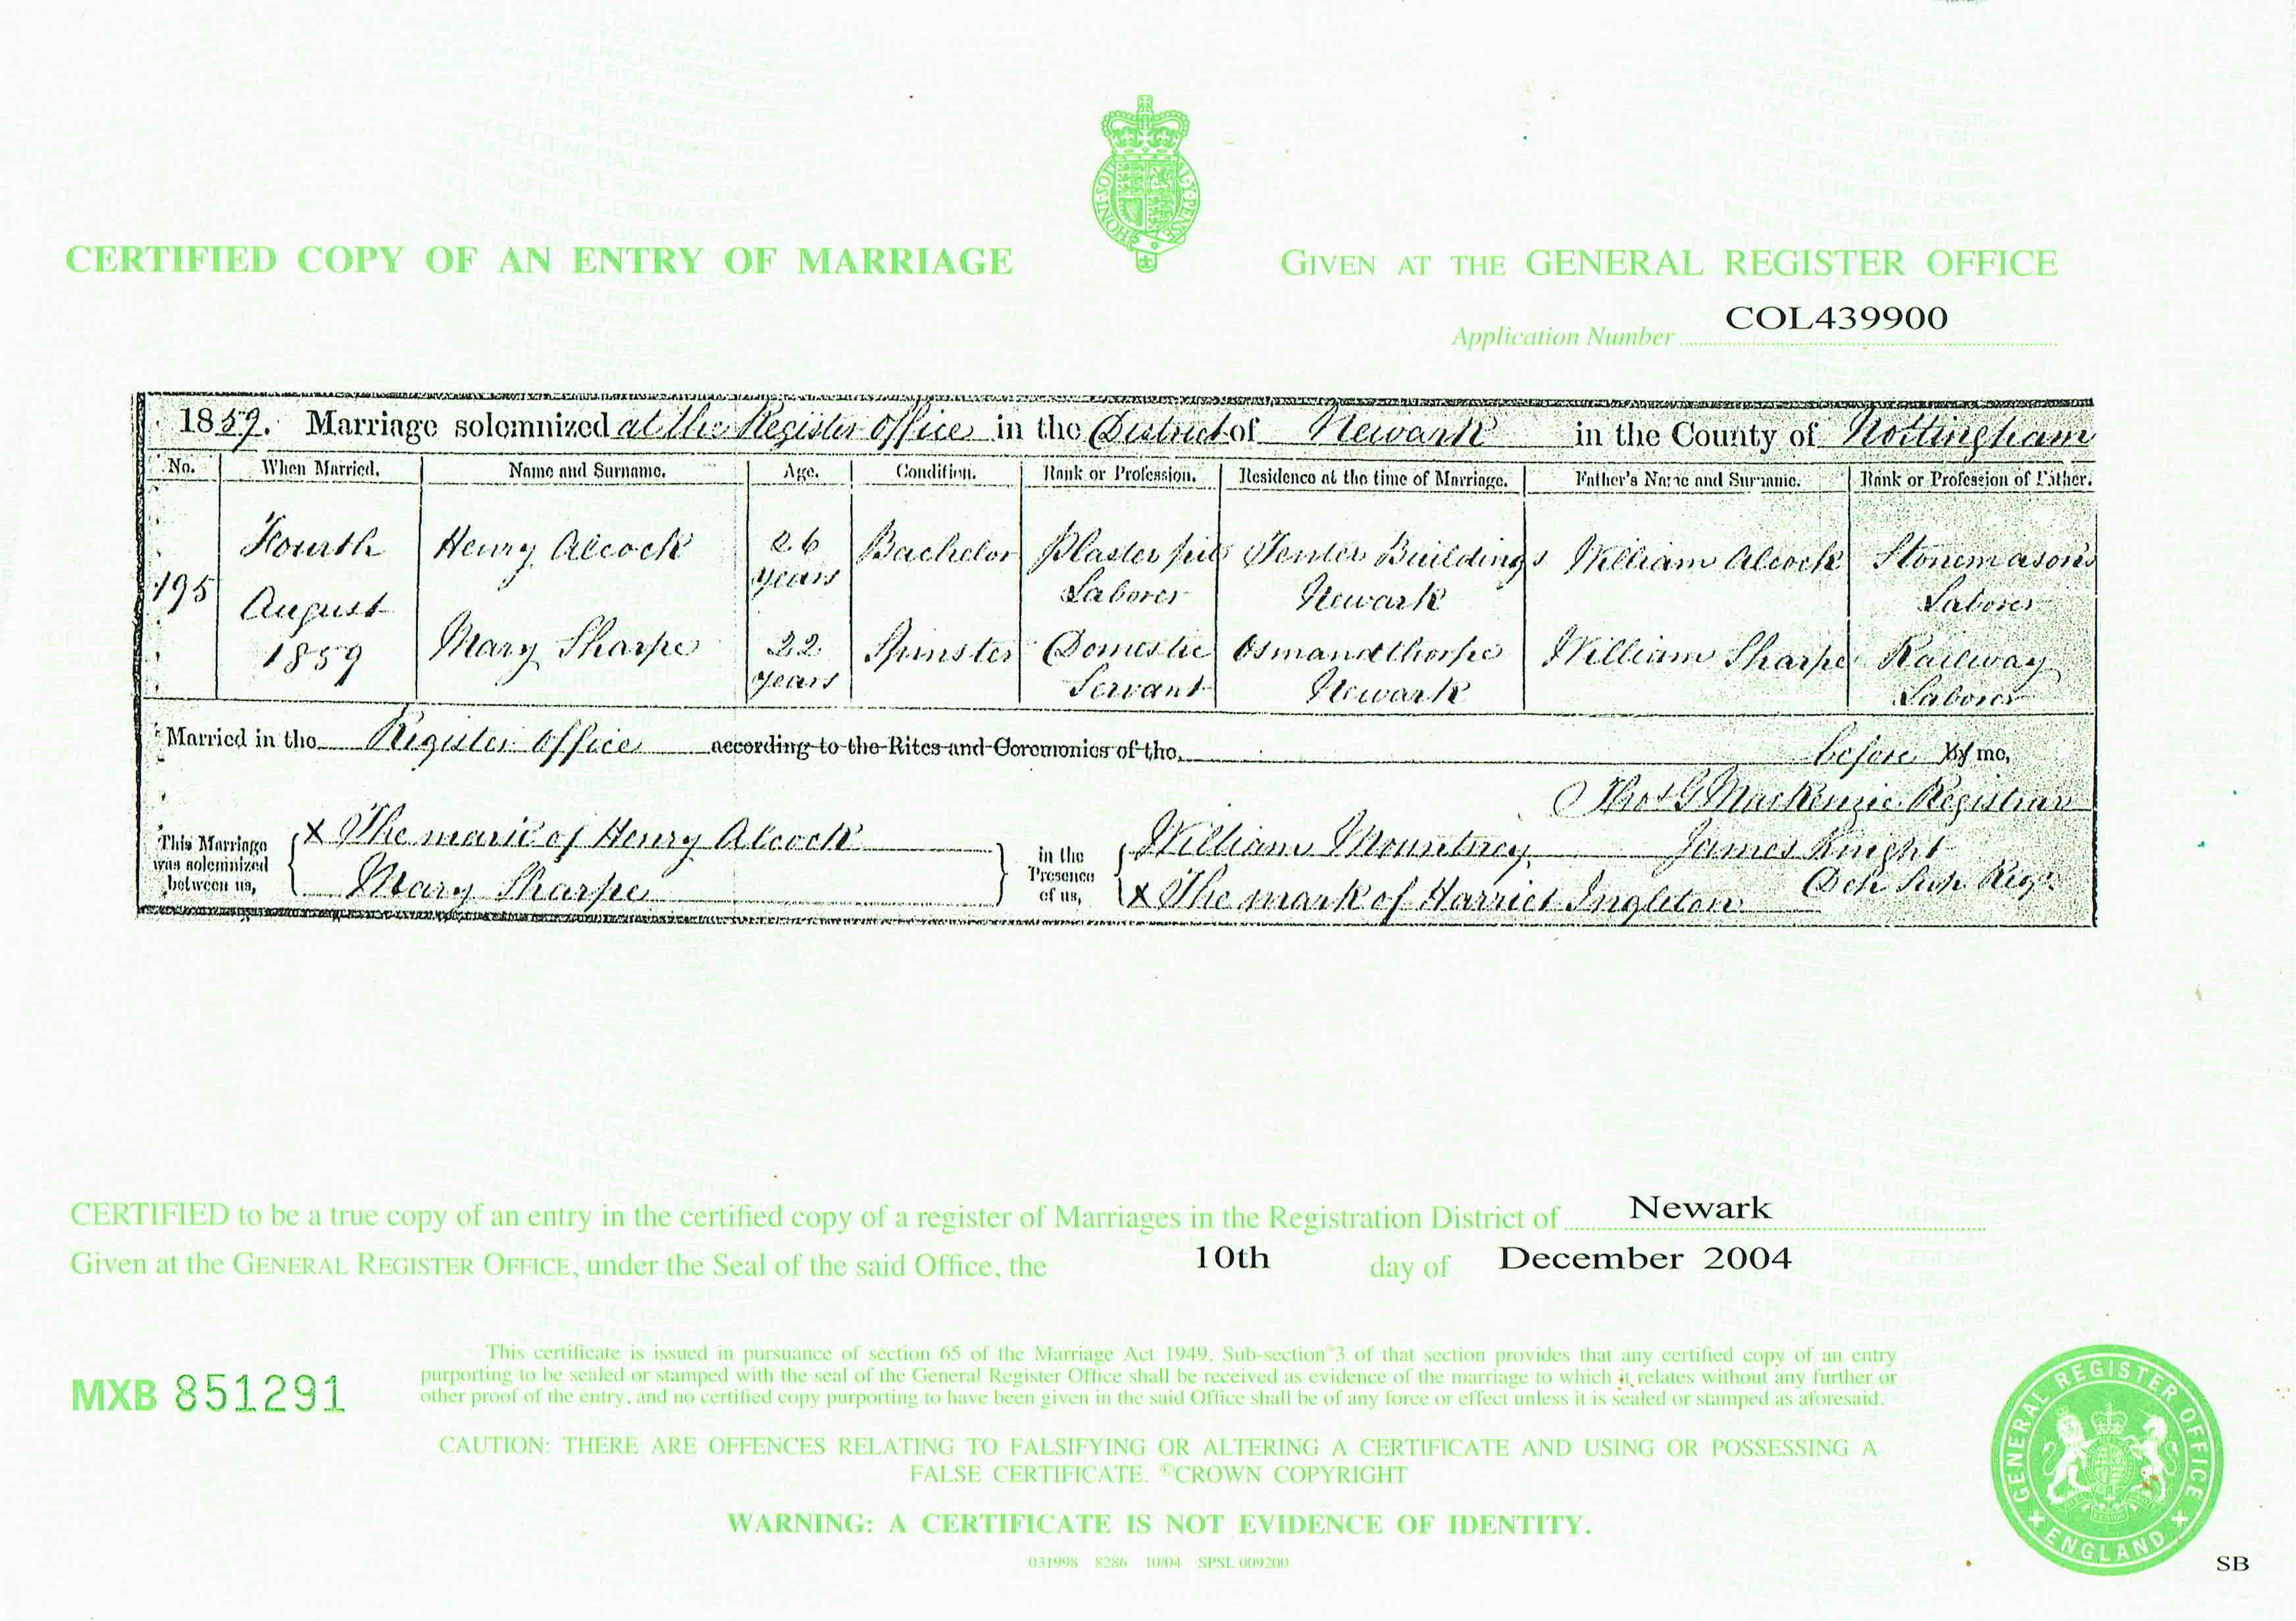 CERTIFIED COPY OF AN ENTRY OF MARRIAGE
HONI·SOIT MAL·Y·PENSE
GIVEN AT THE GENERAL REGISTER OFFICE
Application Number COL439900
1859. Marriage solemnized at the Register Office in the District of Newark in the County of Nottingham
No. When Married. Name and Surname. Age. Condition. Rank or Profession. Residence at the time of Marriage. Father's Name and Surname. Rank or Profession of Father.
195 Fourth August 1859
Henry Alcock 26 years Bachelor Plaster pit Laborer Tenter Buildings Newark William Alcock Stonemasons Laborer
Mary Sharpe 22 years Spinster Domestic Servant Osmandthorpe Newark William Sharpe Railway Laborer
Married in the Register Office according to the Rites and Ceremonies of the before by me,
Thos G Mackenzie Registrar
This Marriage was solemnized between us, X The mark of Henry Alcock
Mary Sharpe
in the Presence of us, William Mountney James Knight
X The mark of Harriet Ingleton Sup Regr
CERTIFIED to be a true copy of an entry in the certified copy of a register of Marriages in the Registration District of Newark
Given at the GENERAL REGISTER OFFICE, under the Seal of the said Office, the 10th day of December 2004
MXB 851291
This certificate is issued in pursuance of section 65 of the Marriage Act 1949. Sub-section 3 of that section provides that any certified copy of an entry
purporting to be sealed or stamped with the seal of the General Register Office shall be received as evidence of the marriage to which it relates without any further or
other proof of the entry, and no certified copy purporting to have been given in the said Office shall be of any force or effect unless it is sealed or stamped as aforesaid.
CAUTION: THERE ARE OFFENCES RELATING TO FALSIFYING OR ALTERING A CERTIFICATE AND USING OR POSSESSING A
FALSE CERTIFICATE. ©CROWN COPYRIGHT
WARNING: A CERTIFICATE IS NOT EVIDENCE OF IDENTITY.
031998 8286 10/04 SPSL 009200
GENERAL REGISTER OFFICE ENGLAND
SB